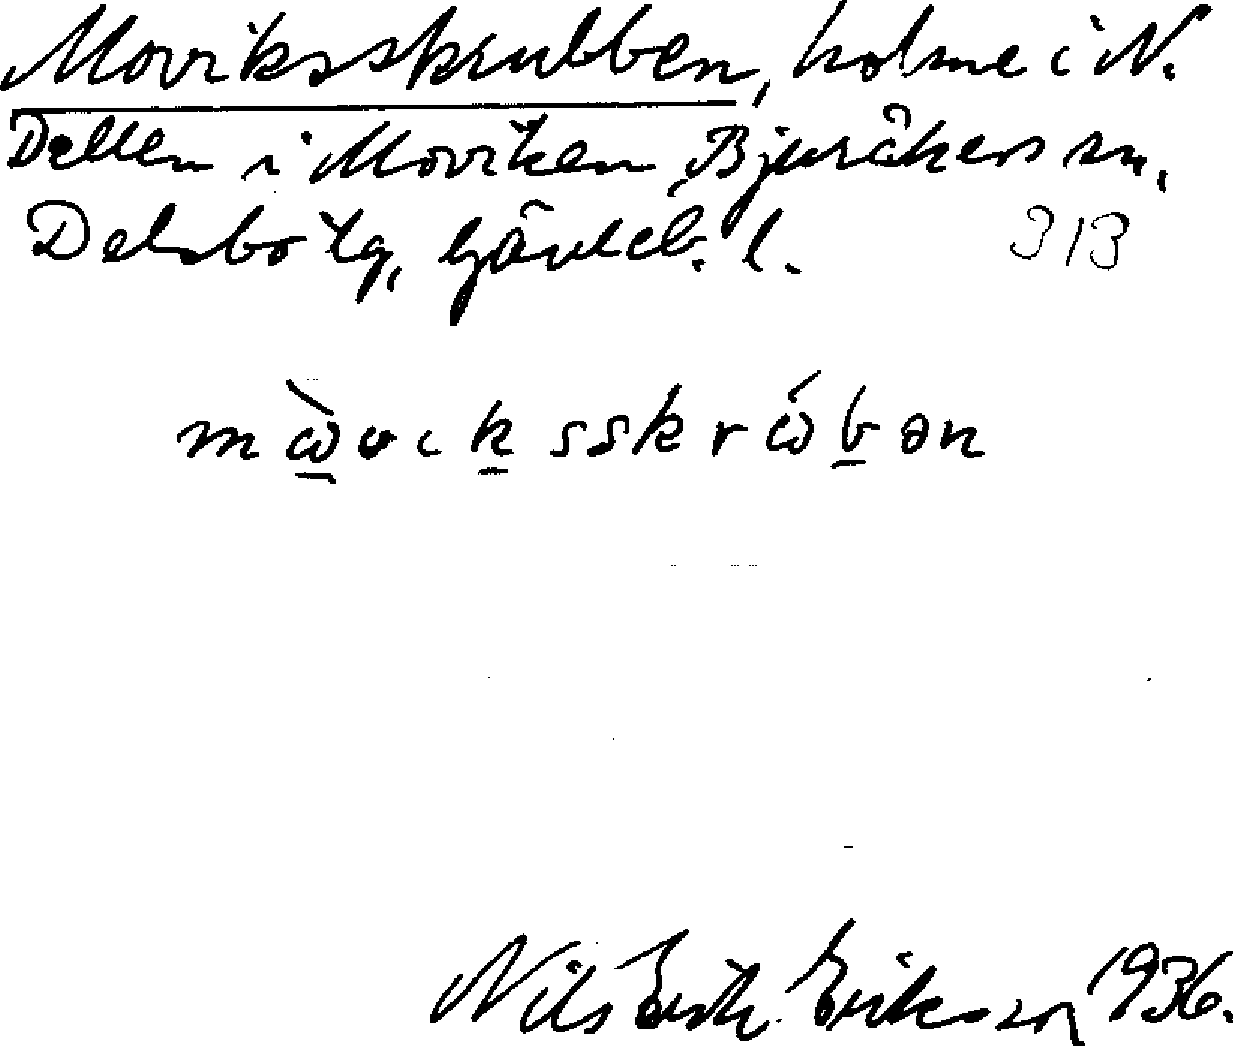 Moviksskrubben, holme i N.
Dellen i Moviken, Bjuråkers sn,
Delsbo tg, Gävleb. l. 313
mὼ̠vık̠sskrώb̠ən
Nils Erik Eriksson 1936.